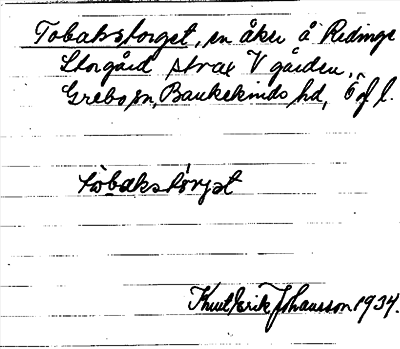 Tobakstorget, en åker å Redinge
Storgård strax V gården,
Grebo sn, Bankekinds hd, Ög l.
tobakstorget
Knut Erik Johansson 1934.